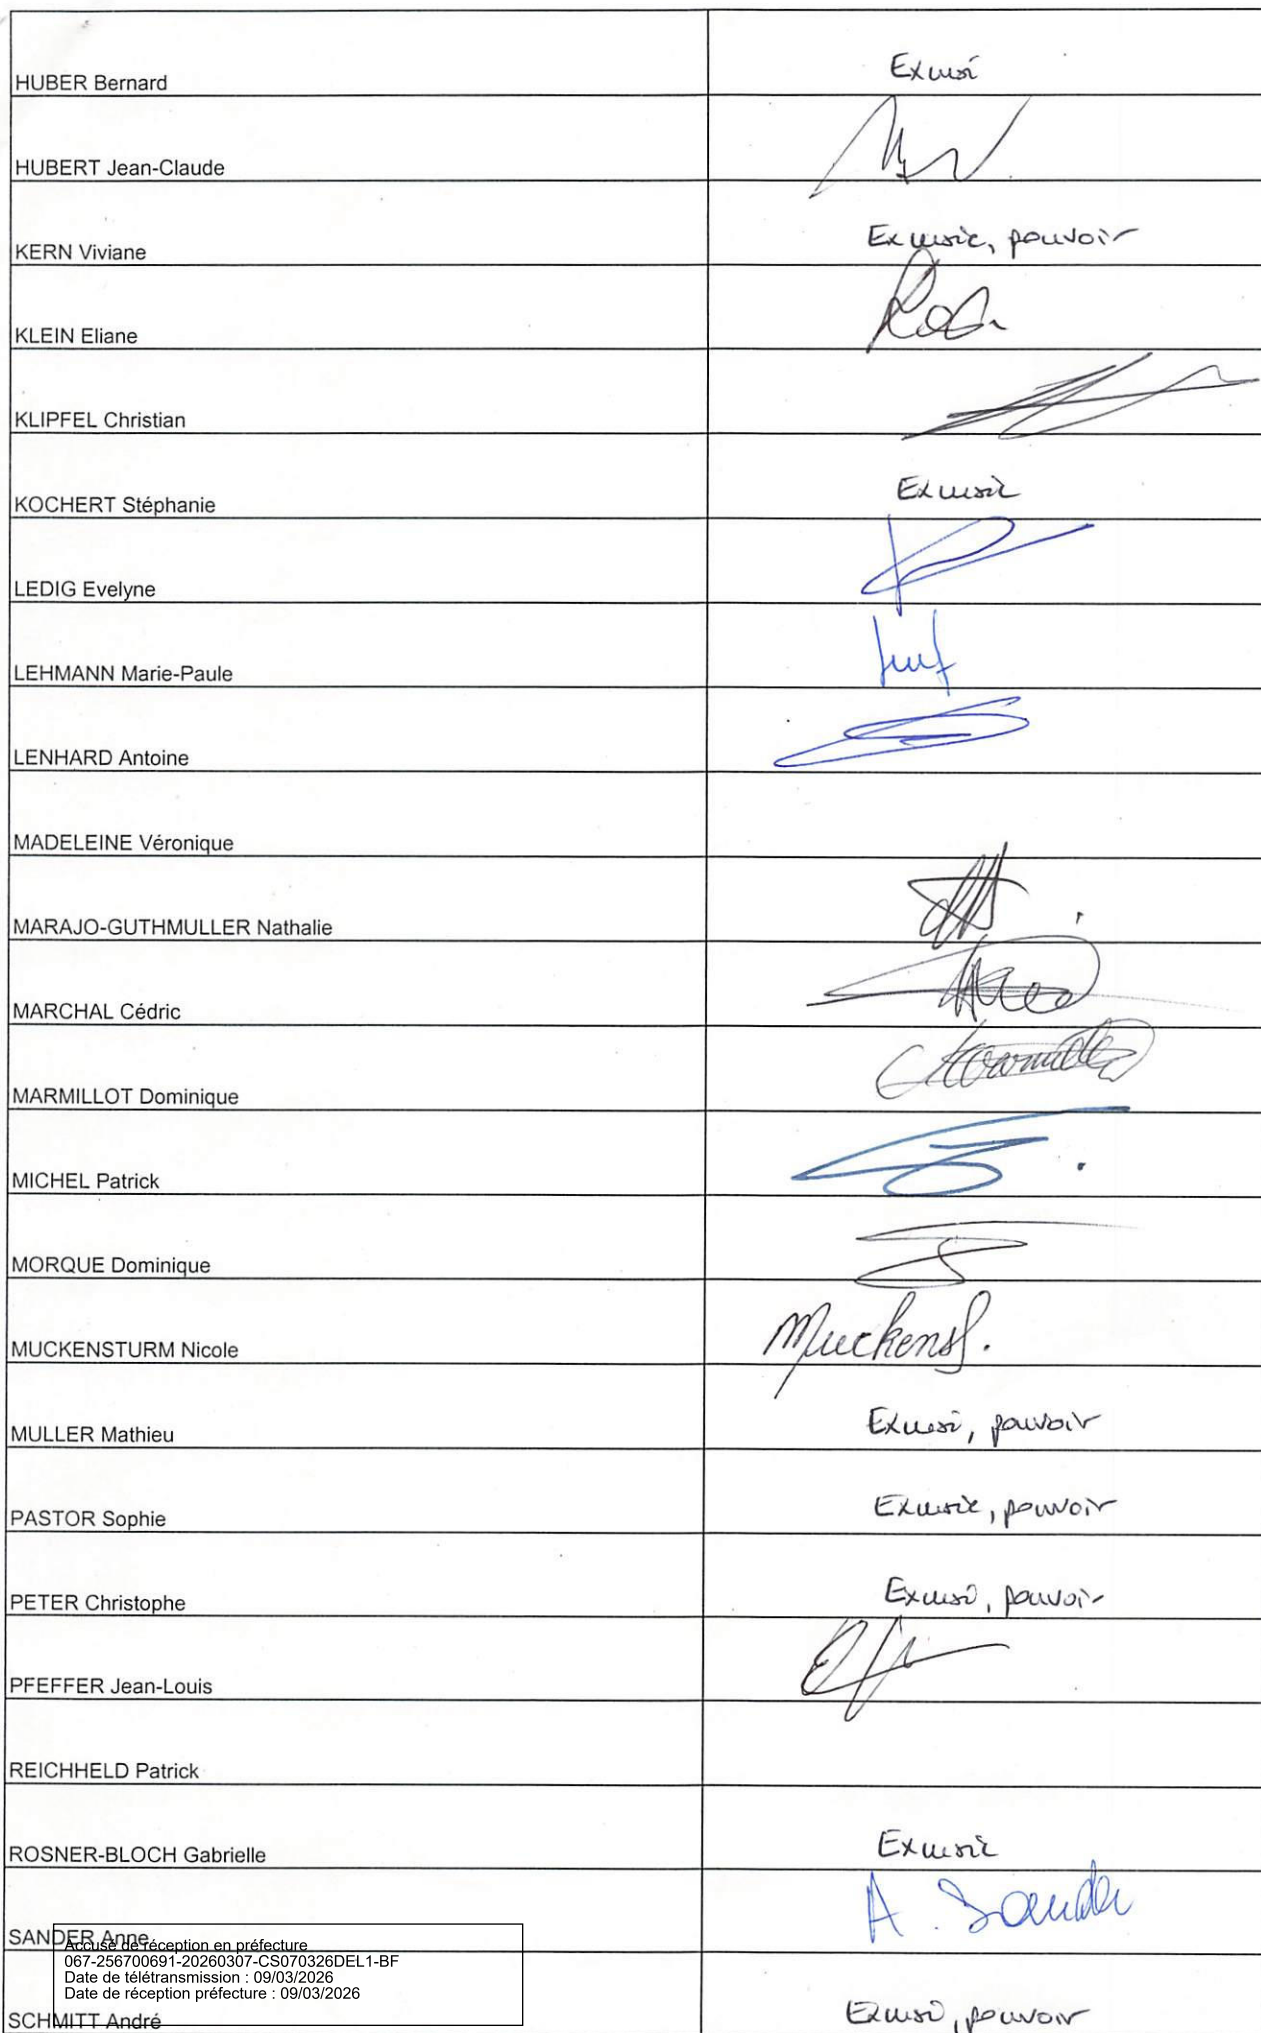 HUBER Bernard Excusé
HUBERT Jean-Claude
KERN Viviane Excusée, pouvoir
KLEIN Eliane
KLIPFEL Christian
KOCHERT Stéphanie Excusée
LEDIG Evelyne
LEHMANN Marie-Paule
LENHARD Antoine
MADELEINE Véronique
MARAJO-GUTHMULLER Nathalie
MARCHAL Cédric
MARMILLOT Dominique
MICHEL Patrick
MORQUE Dominique
MUCKENSTURM Nicole Muckens
MULLER Mathieu Excusé, pouvoir
PASTOR Sophie Excusée, pouvoir
PETER Christophe Excusé, pouvoir
PFEFFER Jean-Louis
REICHHELD Patrick
ROSNER-BLOCH Gabrielle Excusée
SANDER Anne A. Sander
Accusé de réception en préfecture
067-256700691-20260307-CS070326DEL1-BF
Date de télétransmission : 09/03/2026
Date de réception préfecture : 09/03/2026
SCHMITT André Excusé, pouvoir